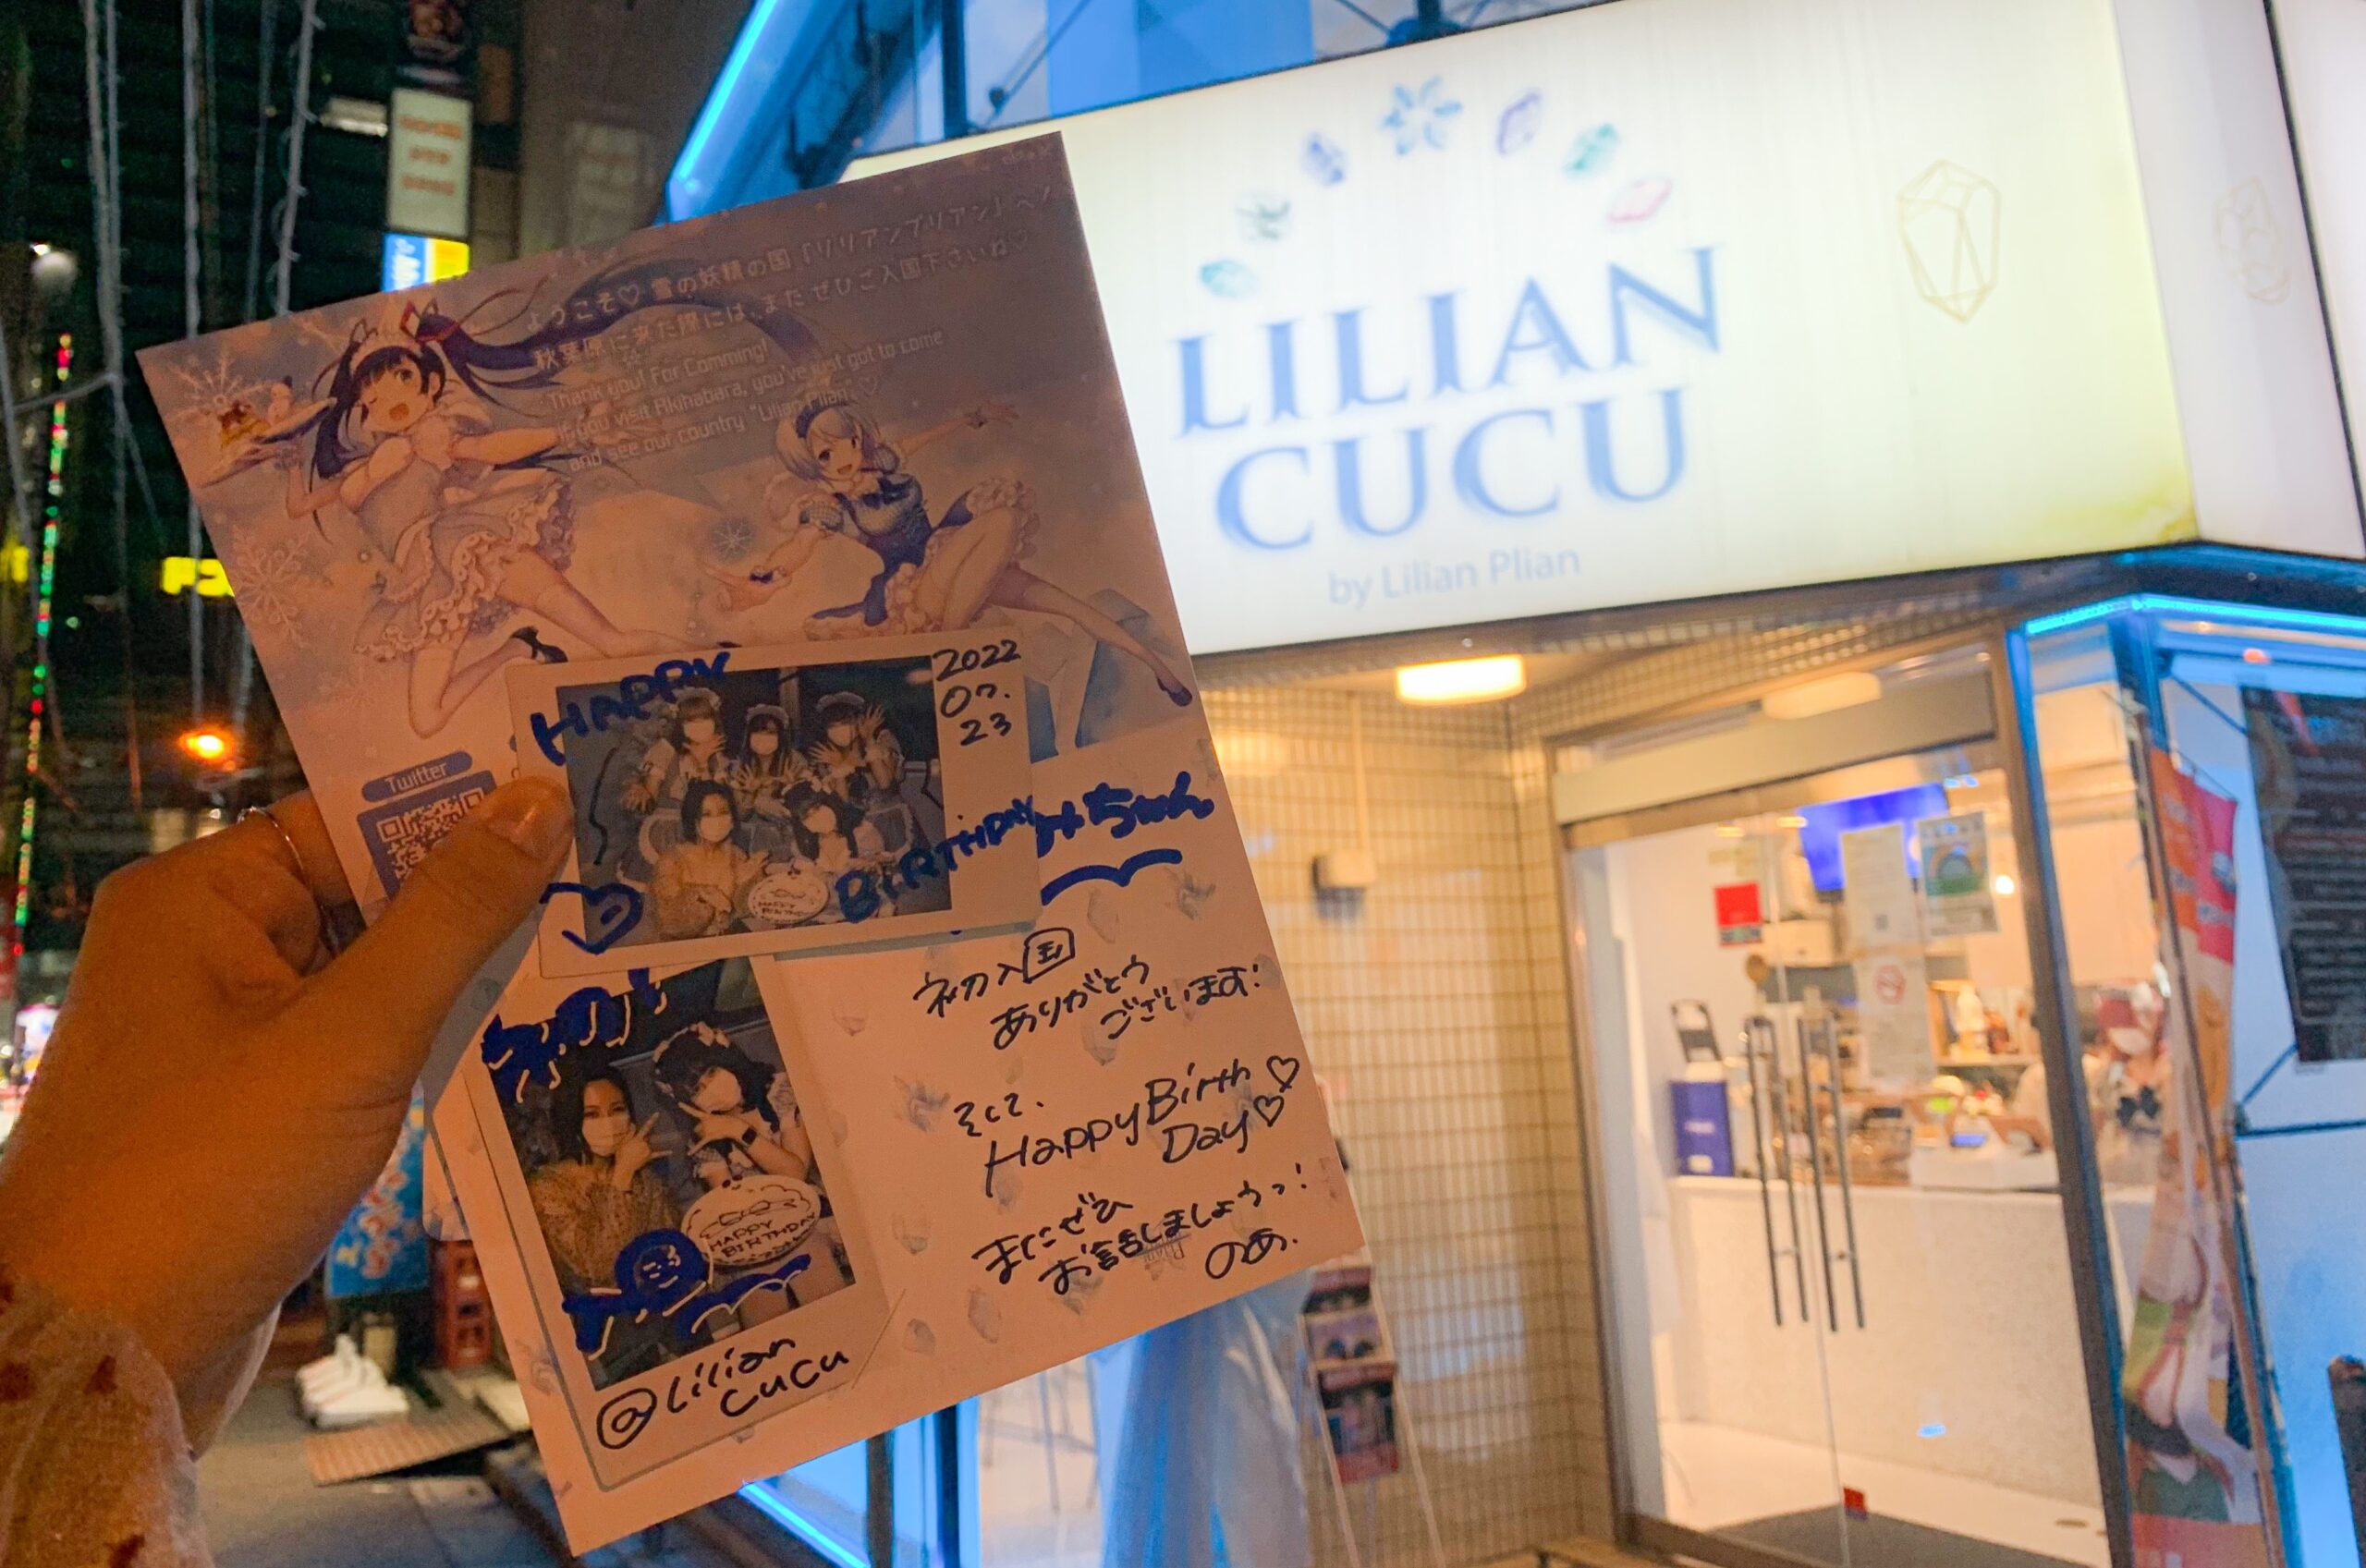 LILIAN
CUCU
by Lilian Plian
ようこそ♡ 雪の妖精の国「リリアンプリアン」へ
秋葉原に来た際には、また ぜひご入国下さいね♡
Thank you! For Comming!
If you visit Akihabara, you've just got to come
and see our country "Lilian Plian"♡
Twitter
HAPPY
BIRTHDAY
2022
07.
23
ちゃん
初入国
ありがとう
ございます!
そして、
Happy Birth
Day♡♡
またぜひ
お話しましょうっ!
のあ.
HAPPY
BIRTHDAY
@Lilian
cucu